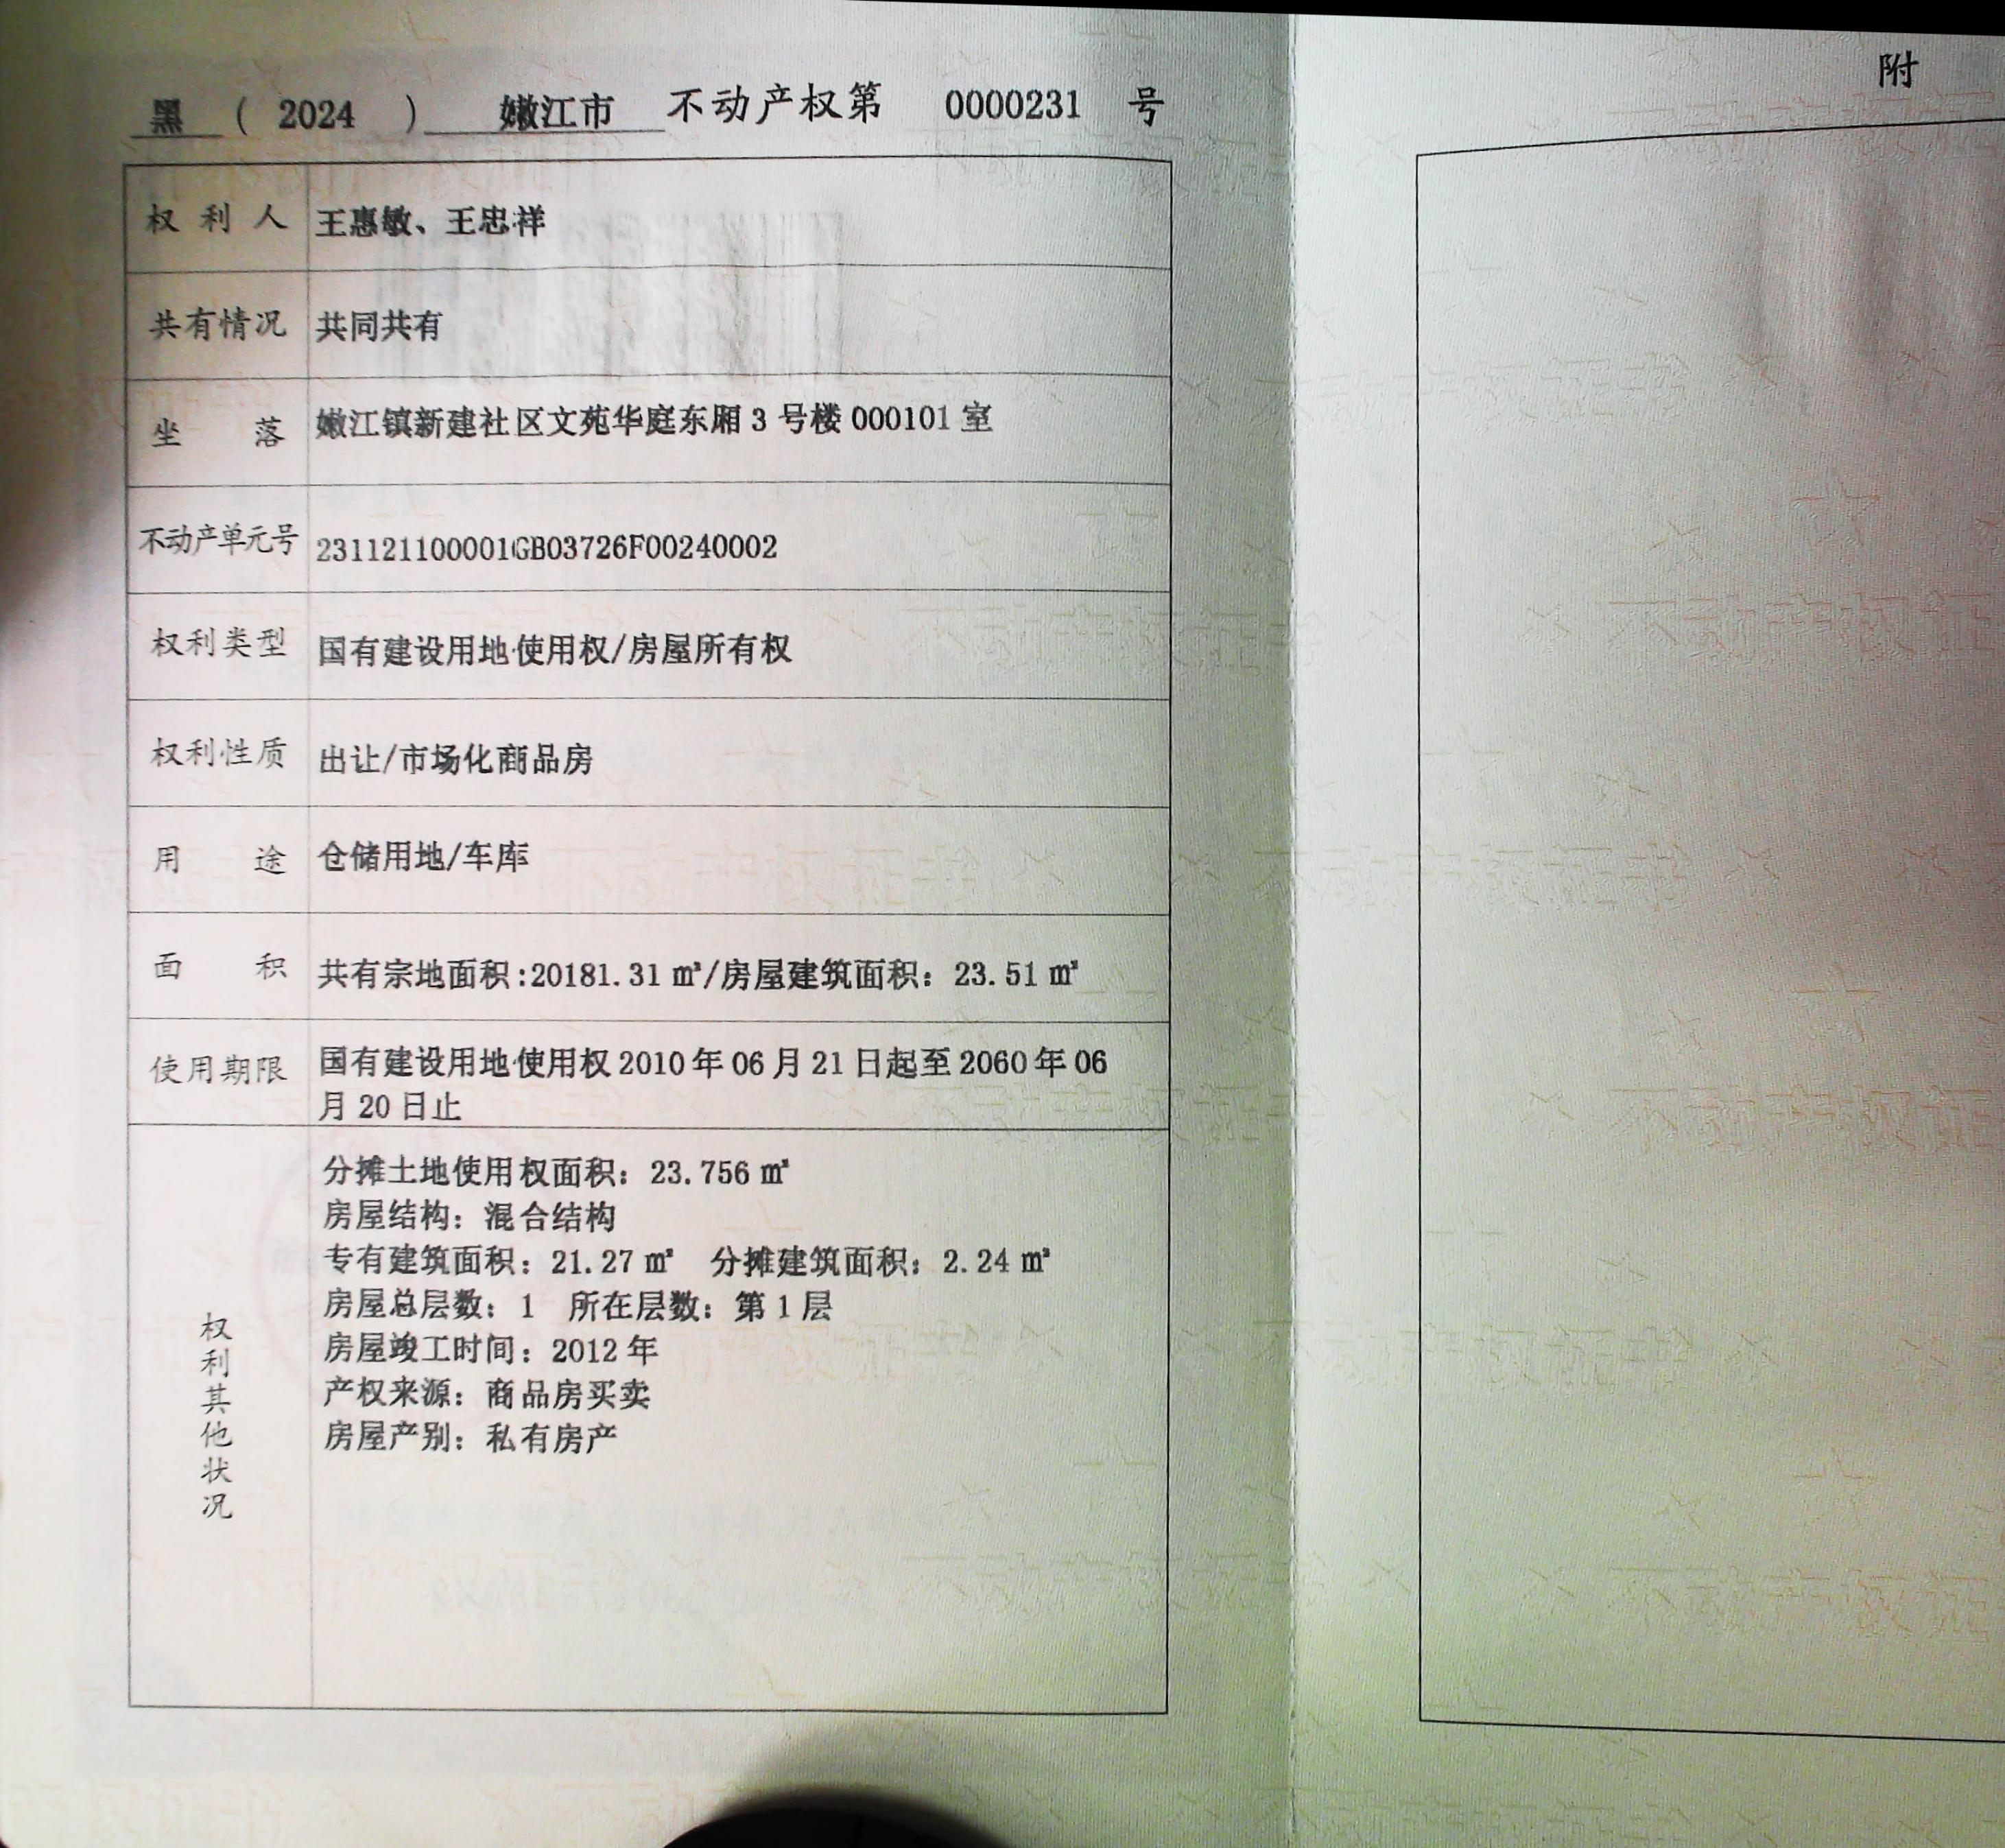 黑 ( 2024 ) 嫩江市 不动产权第 0000231 号
附
权利人 王惠敏、王忠祥
共有情况 共同共有
坐落 嫩江镇新建社区文苑华庭东厢 3 号楼 000101 室
不动产单元号 231121100001GB03726F00240002
权利类型 国有建设用地使用权/房屋所有权
权利性质 出让/市场化商品房
用途 仓储用地/车库
面积 共有宗地面积:20181.31 ㎡/房屋建筑面积：23.51 ㎡
使用期限 国有建设用地使用权 2010 年 06 月 21 日起至 2060 年 06
月 20 日止
权利其他状况
分摊土地使用权面积：23.756 ㎡
房屋结构：混合结构
专有建筑面积：21.27 ㎡ 分摊建筑面积：2.24 ㎡
房屋总层数：1 所在层数：第 1 层
房屋竣工时间：2012 年
产权来源：商品房买卖
房屋产别：私有房产